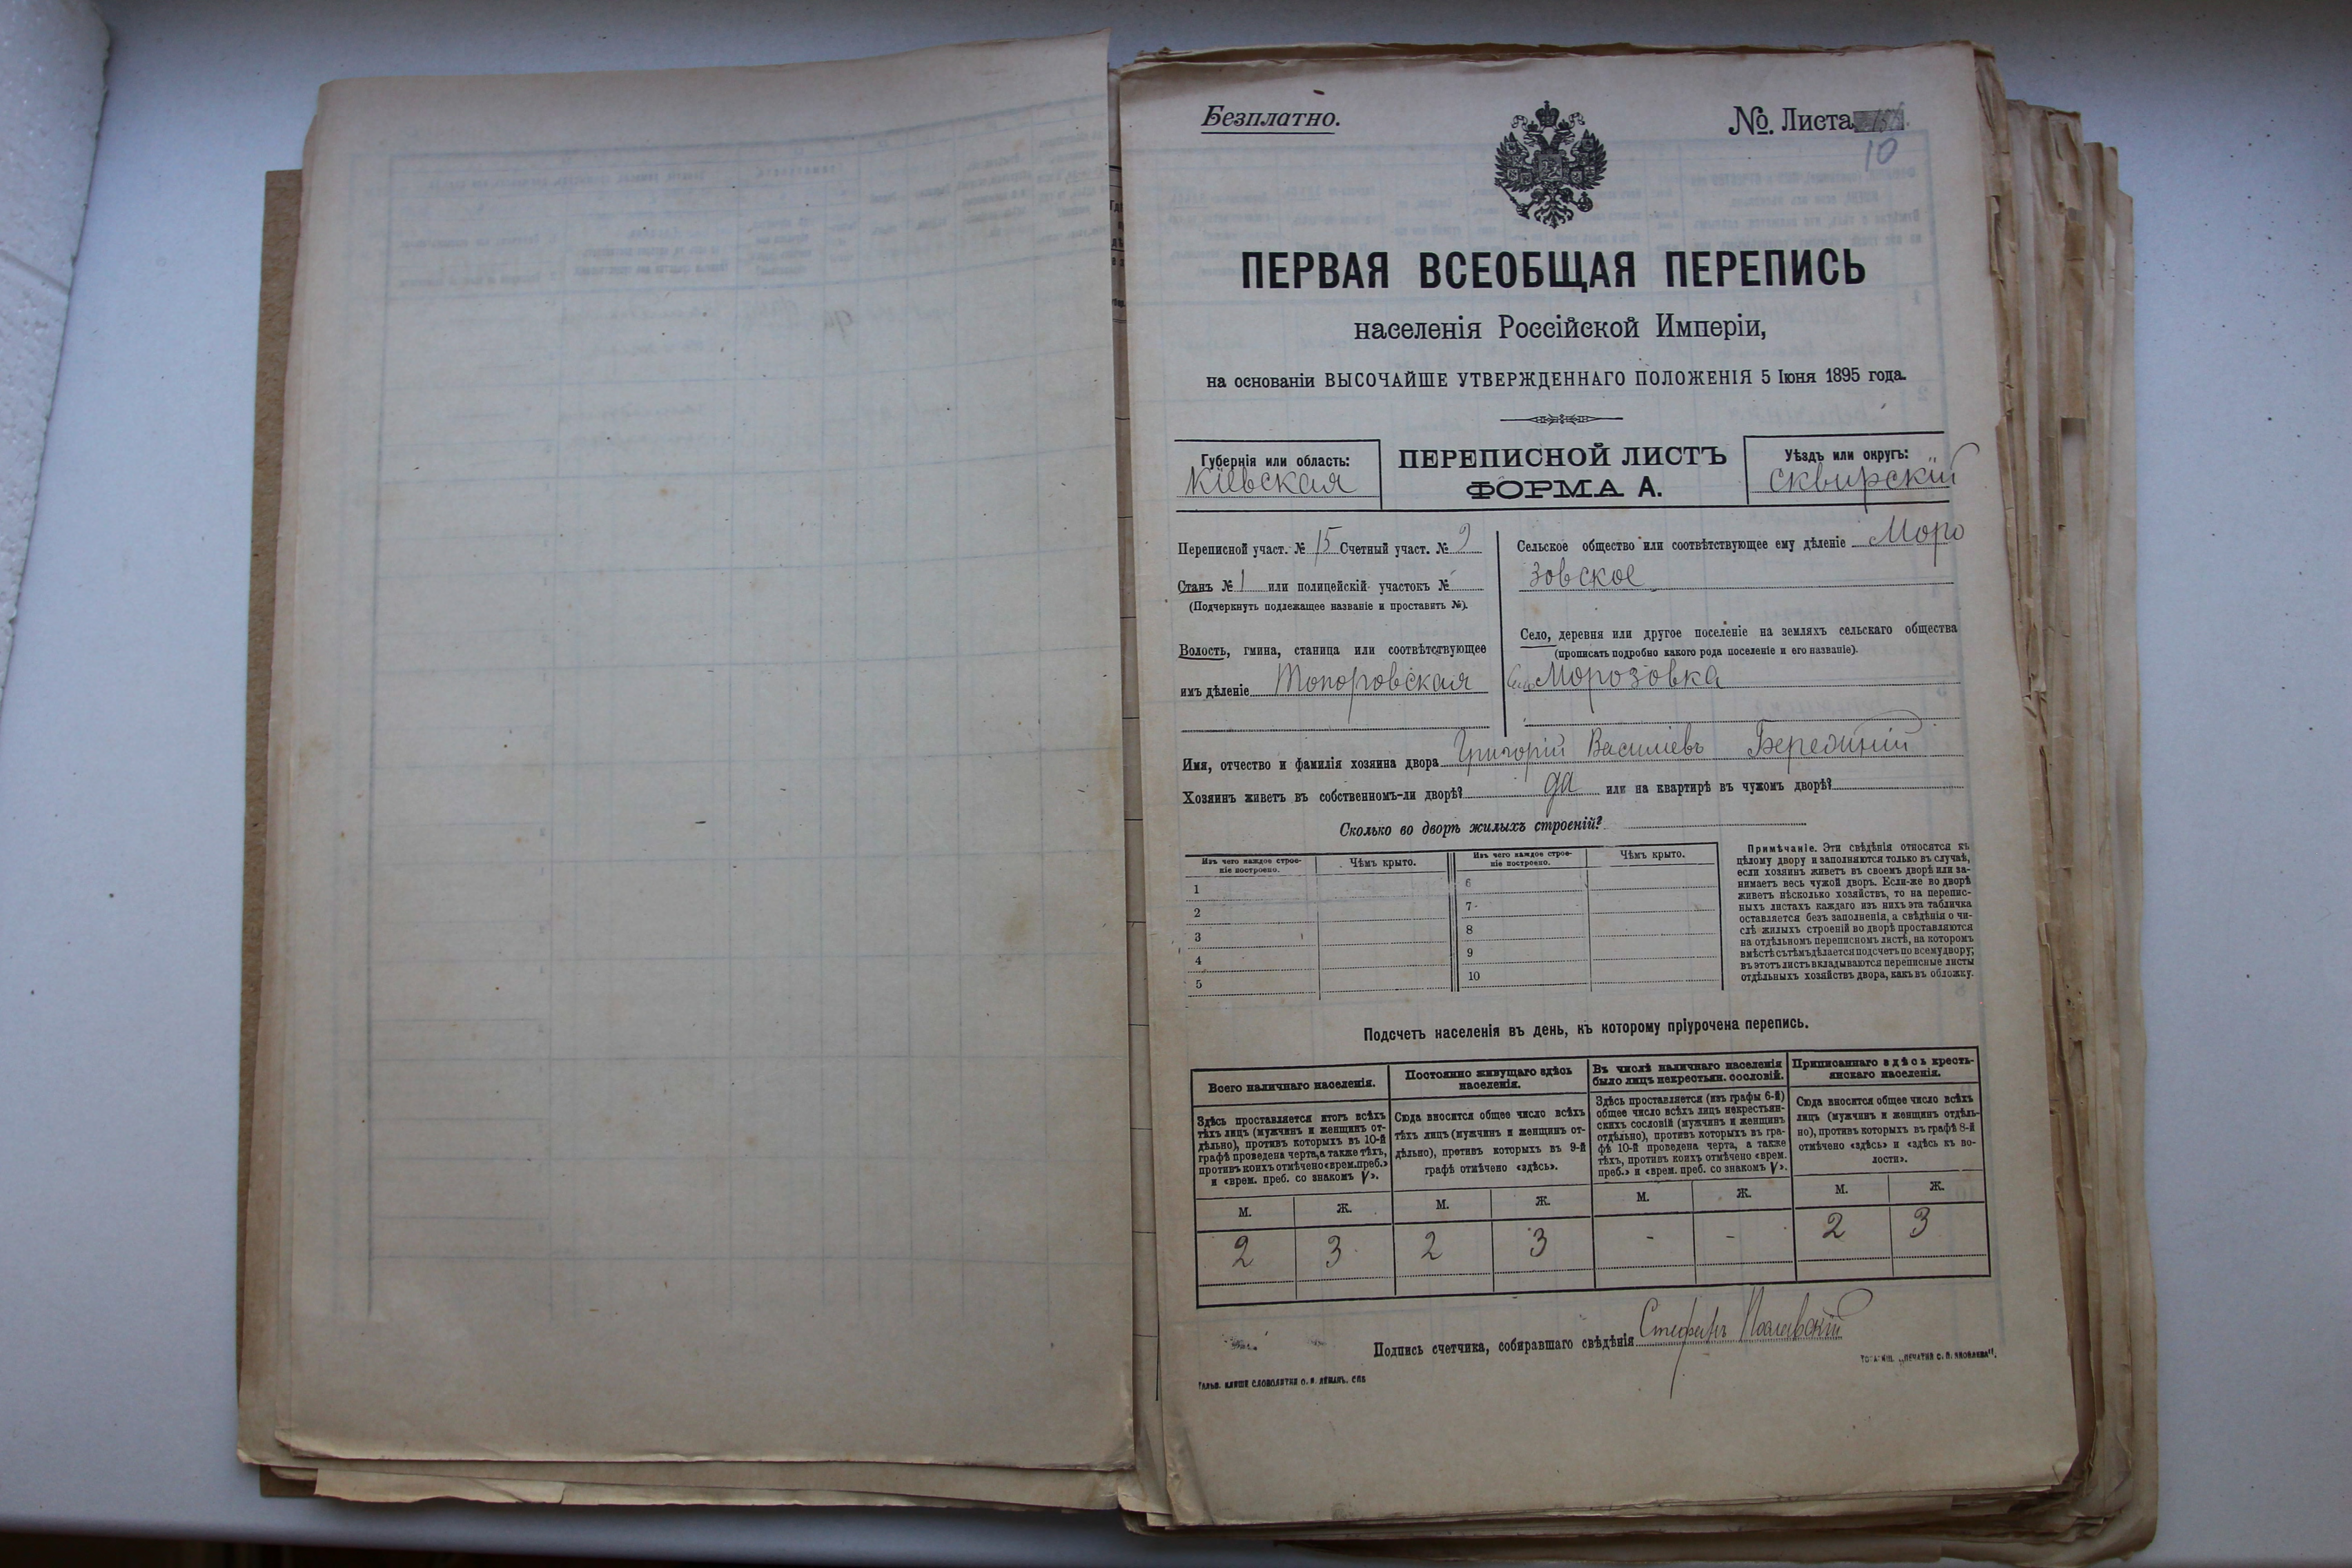 Безплатно.
№. Листа
10
ПЕРВАЯ ВСЕОБЩАЯ ПЕРЕПИСЬ
населенія Россійской Имперіи,
на основаніи ВЫСОЧАЙШЕ УТВЕРЖДЕННАГО ПОЛОЖЕНІЯ 5 Іюня 1895 года.
Губернія или область:
Кіевская
ПЕРЕПИСНОЙ ЛИСТЪ
ФОРМА А.
Уѣздъ или округъ:
Сквирскій
Переписной участ. № 15 Счетный участ. № 9
Станъ № 1 или полицейскій участокъ №
(Подчеркнуть подлежащее названіе и проставить №).
Волость, гмина, станица или соотвѣтствующее
имъ дѣленіе Топоровская
Сельское общество или соотвѣтствующее ему дѣленіе Моро
зовское
Село, деревня или другое поселеніе на земляхъ сельскаго общества
(прописать подробно какого рода поселеніе и его названіе).
Село Морозовка
Имя, отчество и фамилія хозяина двора Григорій Василіевъ
Хозяинъ живетъ въ собственномъ-ли дворѣ? да или на квартирѣ въ чужомъ дворѣ?
Сколько во дворѣ жилыхъ строеній?
Изъ чего каждое строе-
ніе построено.
Чѣмъ крыто.
Изъ чего каждое строе-
ніе построено.
Чѣмъ крыто.
1
2
3
4
5
6
7
8
9
10
Примѣчаніе. Эти свѣдѣнія относятся къ
цѣлому двору и заполняются только въ случаѣ,
если хозяинъ живетъ въ своемъ дворѣ или за-
нимаетъ весь чужой дворъ. Если-же во дворѣ
живетъ нѣсколько хозяйствъ, то на перепис-
ныхъ листахъ каждаго изъ нихъ эта табличка
оставляется безъ заполненія, а свѣдѣнія о чи-
слѣ жилыхъ строеній во дворѣ проставляются
на отдѣльномъ переписномъ листѣ, на которомъ
вмѣстѣ съ тѣмъ дѣлается подсчетъ по всему двору;
въ этотъ листъ вкладываются переписные листы
отдѣльныхъ хозяйствъ двора, какъ въ обложку.
Подсчетъ населенія въ день, къ которому пріурочена перепись.
Всего наличнаго населенія.
Здѣсь проставляется итогъ всѣхъ
тѣхъ лицъ (мужчинъ и женщинъ от-
дѣльно), противъ которыхъ въ 10-й
графѣ проведена черта, а также тѣхъ,
противъ коихъ отмѣчено «врем. преб.»
и «врем. преб. со знакомъ V».
Постоянно живущаго здѣсь
населенія.
Сюда вносится общее число всѣхъ
тѣхъ лицъ (мужчинъ и женщинъ от-
дѣльно), противъ которыхъ въ 9-й
графѣ отмѣчено «здѣсь».
Въ числѣ наличнаго населенія
было лицъ некрестьян. сословій.
Здѣсь проставляется (изъ графы 6-й)
общее число всѣхъ лицъ некрестьян-
скихъ сословій (мужчинъ и женщинъ
отдѣльно), противъ которыхъ въ гра-
фѣ 10-й проведена черта, а также
тѣхъ, противъ коихъ отмѣчено «врем.
преб.» и «врем. преб. со знакомъ V».
Приписаннаго здѣсь кресть-
янскаго населенія.
Сюда вносится общее число всѣхъ
лицъ (мужчинъ и женщинъ отдѣль-
но), противъ которыхъ въ графѣ 8-й
отмѣчено «здѣсь» и «здѣсь къ во-
лости».
М. Ж. М. Ж. М. Ж. М. Ж.
2 3 2 3 - - 2 3
Подпись счетчика, собиравшаго свѣдѣнія Стефанъ